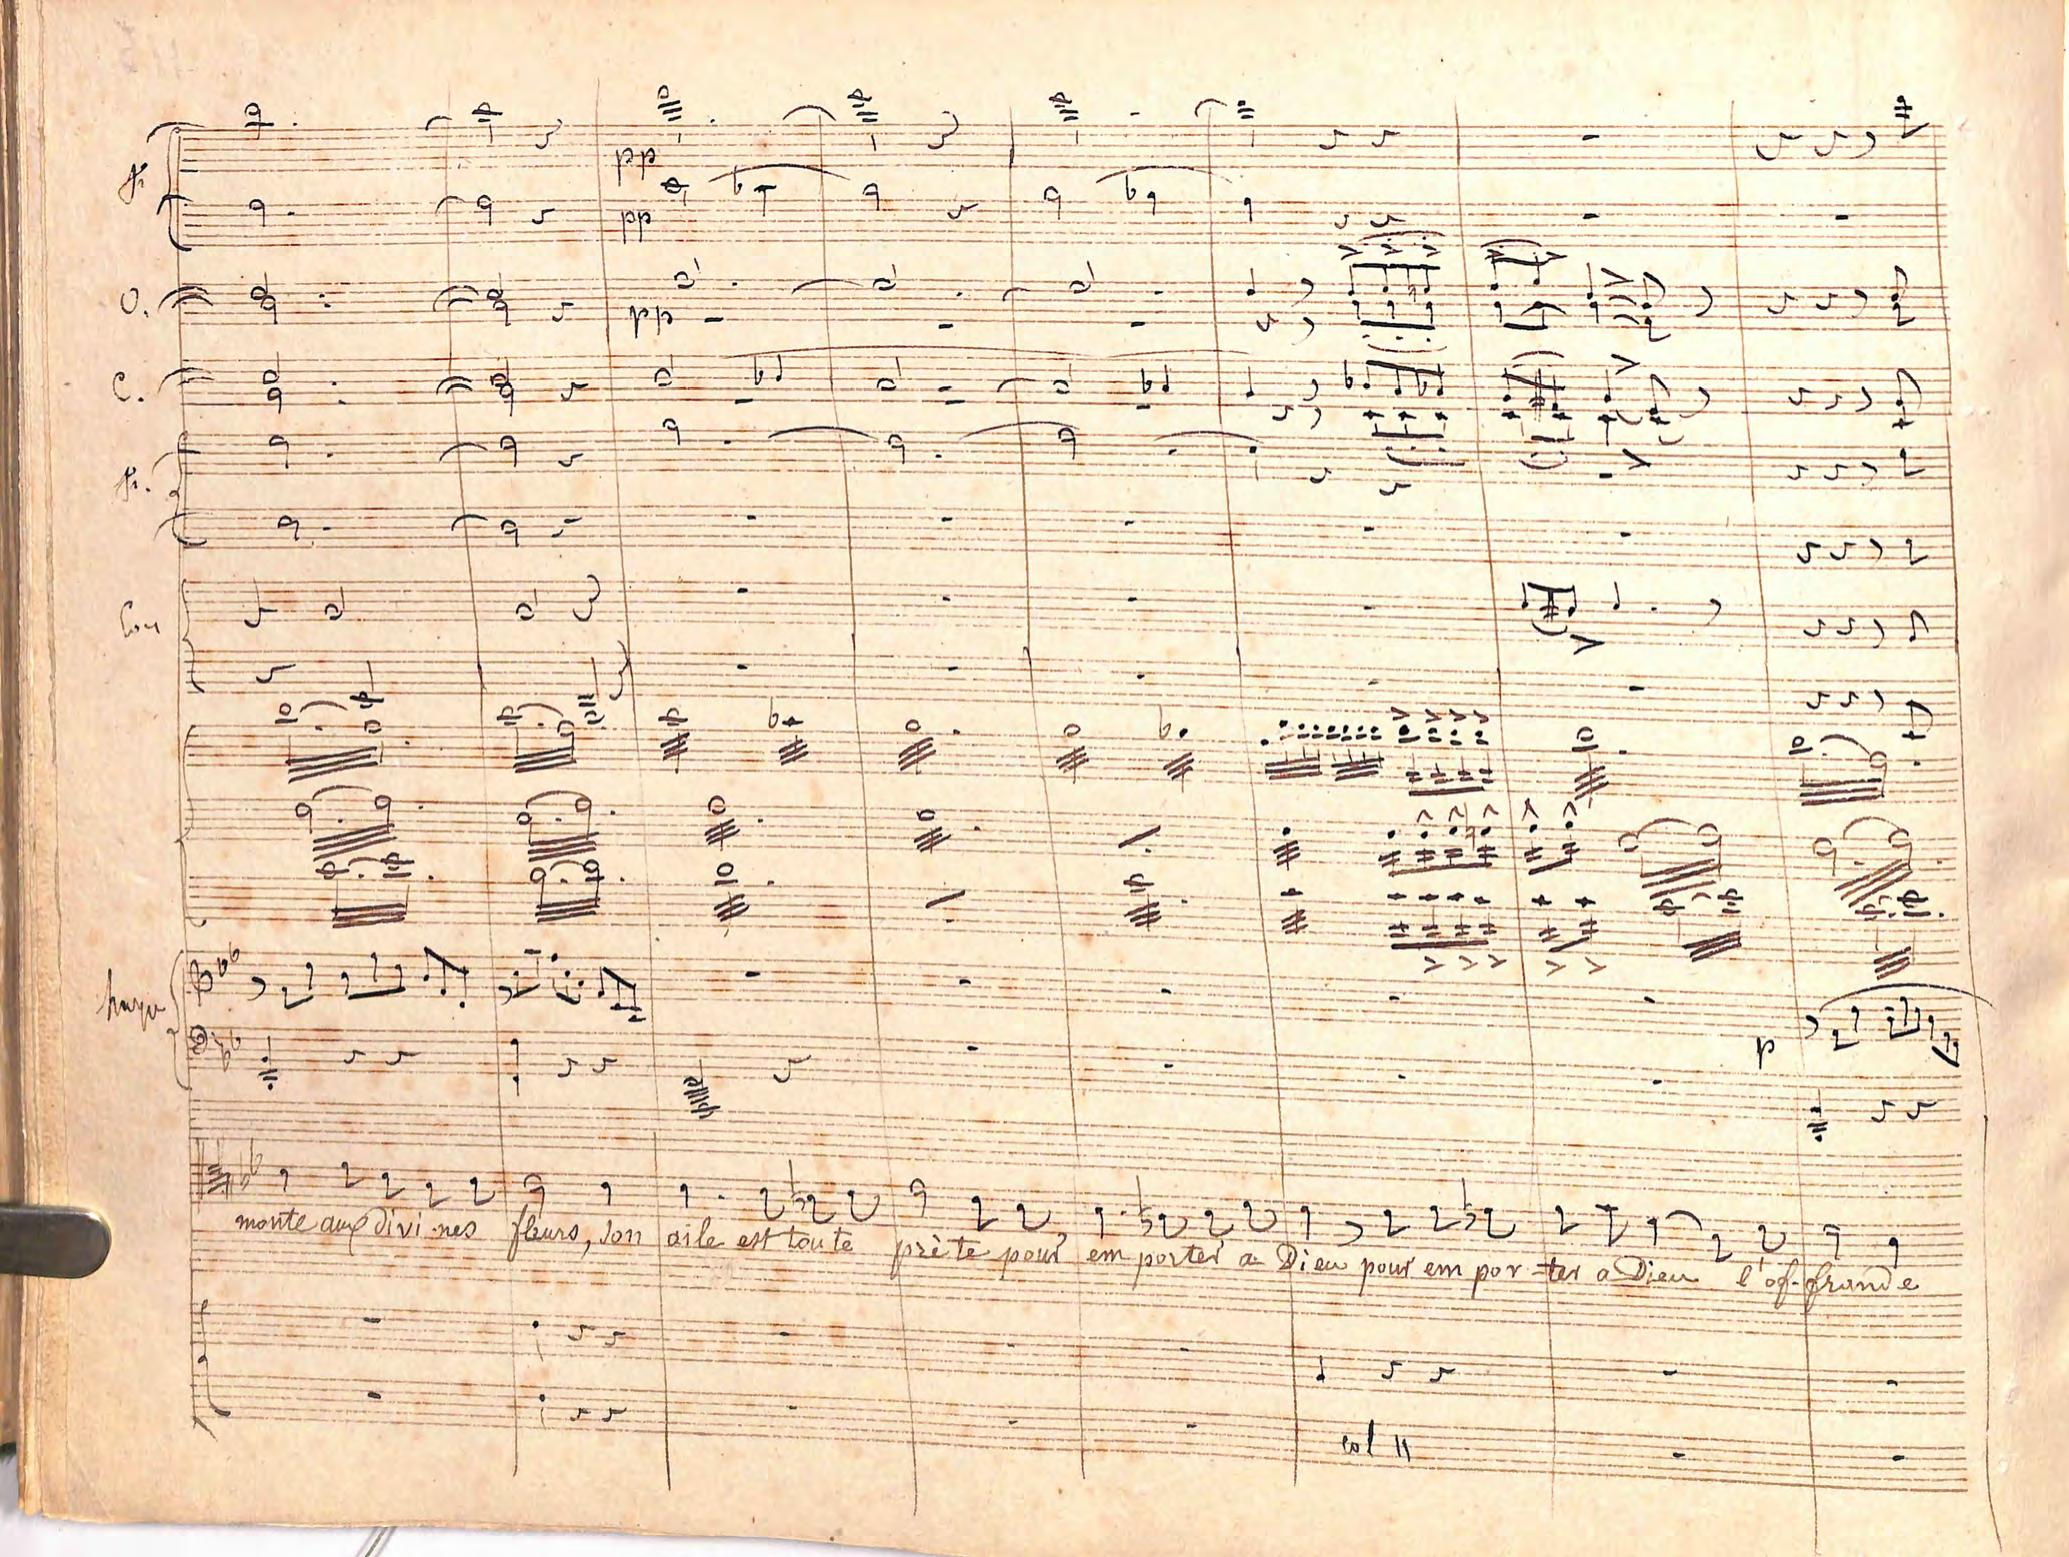 pp
pp
O.
pp
C.
p
monte aux divi-nes fleurs, son aile est toute prète pour em porter a Dieu pour em por-ter a Dieu l'of-frande
col 11